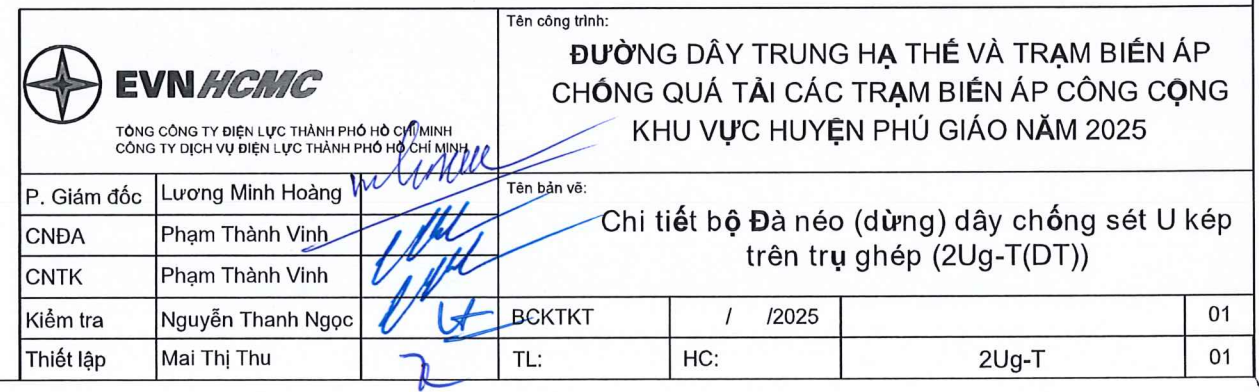 EVNHCMC
TỔNG CÔNG TY ĐIỆN LỰC THÀNH PHỐ HỒ CHÍ MINH
CÔNG TY DỊCH VỤ ĐIỆN LỰC THÀNH PHỐ HỒ CHÍ MINH
Tên công trình:
ĐƯỜNG DÂY TRUNG HẠ THẾ VÀ TRẠM BIẾN ÁP
CHỐNG QUÁ TẢI CÁC TRẠM BIẾN ÁP CÔNG CỘNG
KHU VỰC HUYỆN PHÚ GIÁO NĂM 2025
P. Giám đốc Lương Minh Hoàng
CNĐA Phạm Thành Vinh
CNTK Phạm Thành Vinh
Kiểm tra Nguyễn Thanh Ngọc
Thiết lập Mai Thị Thu
Tên bản vẽ:
Chi tiết bộ Đà néo (dừng) dây chống sét U kép
trên trụ ghép (2Ug-T(DT))
BCKTKT / /2025 01
TL: HC: 2Ug-T 01